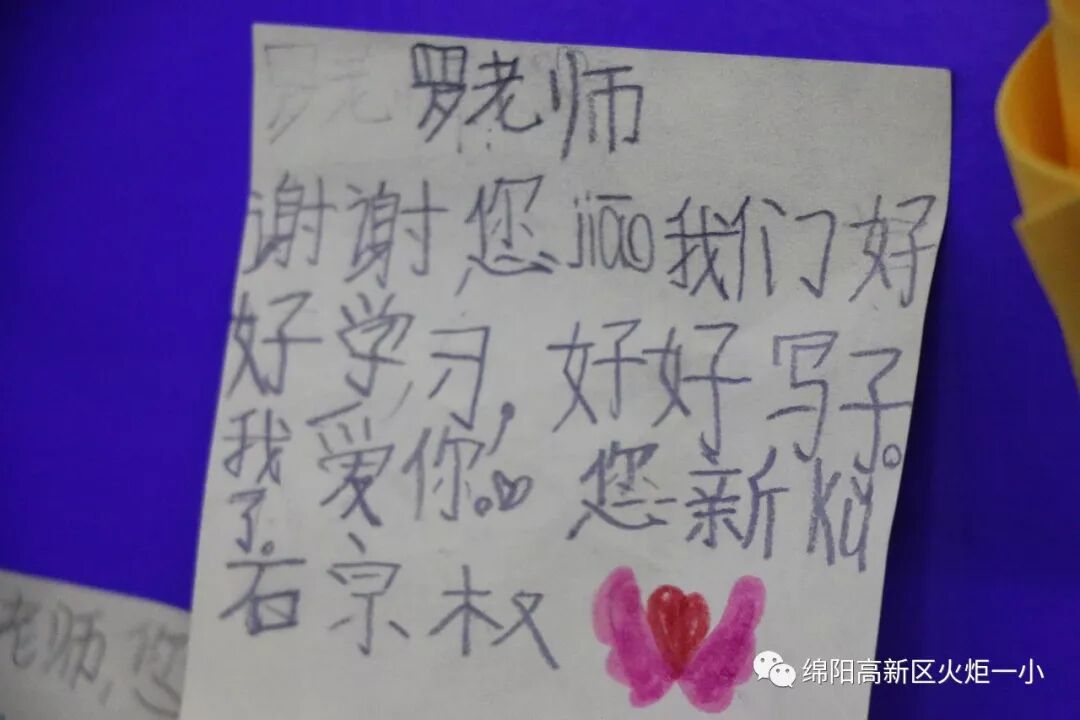 罗老 罗老师
谢谢您jiāo我们好
好学习,好好写子。
我爱你。您新kǔ
了。
石宗权
老师,您
绵阳高新区火炬一小